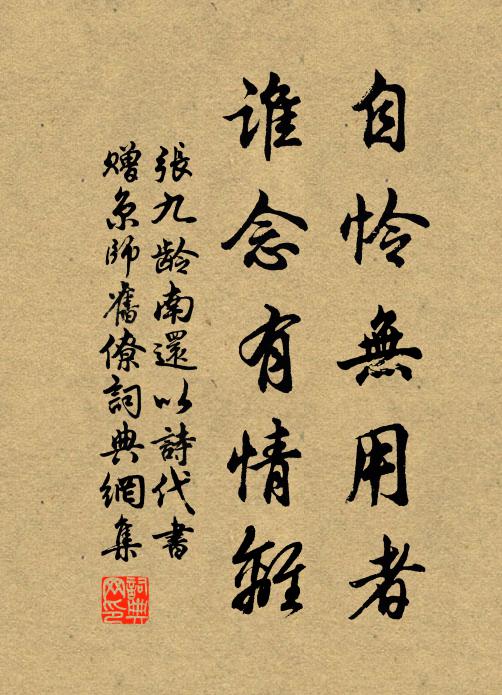 自怜無用者
誰念有情離
張九齡南還以詩代書
贈京師舊僚詞典網集
詞典网印